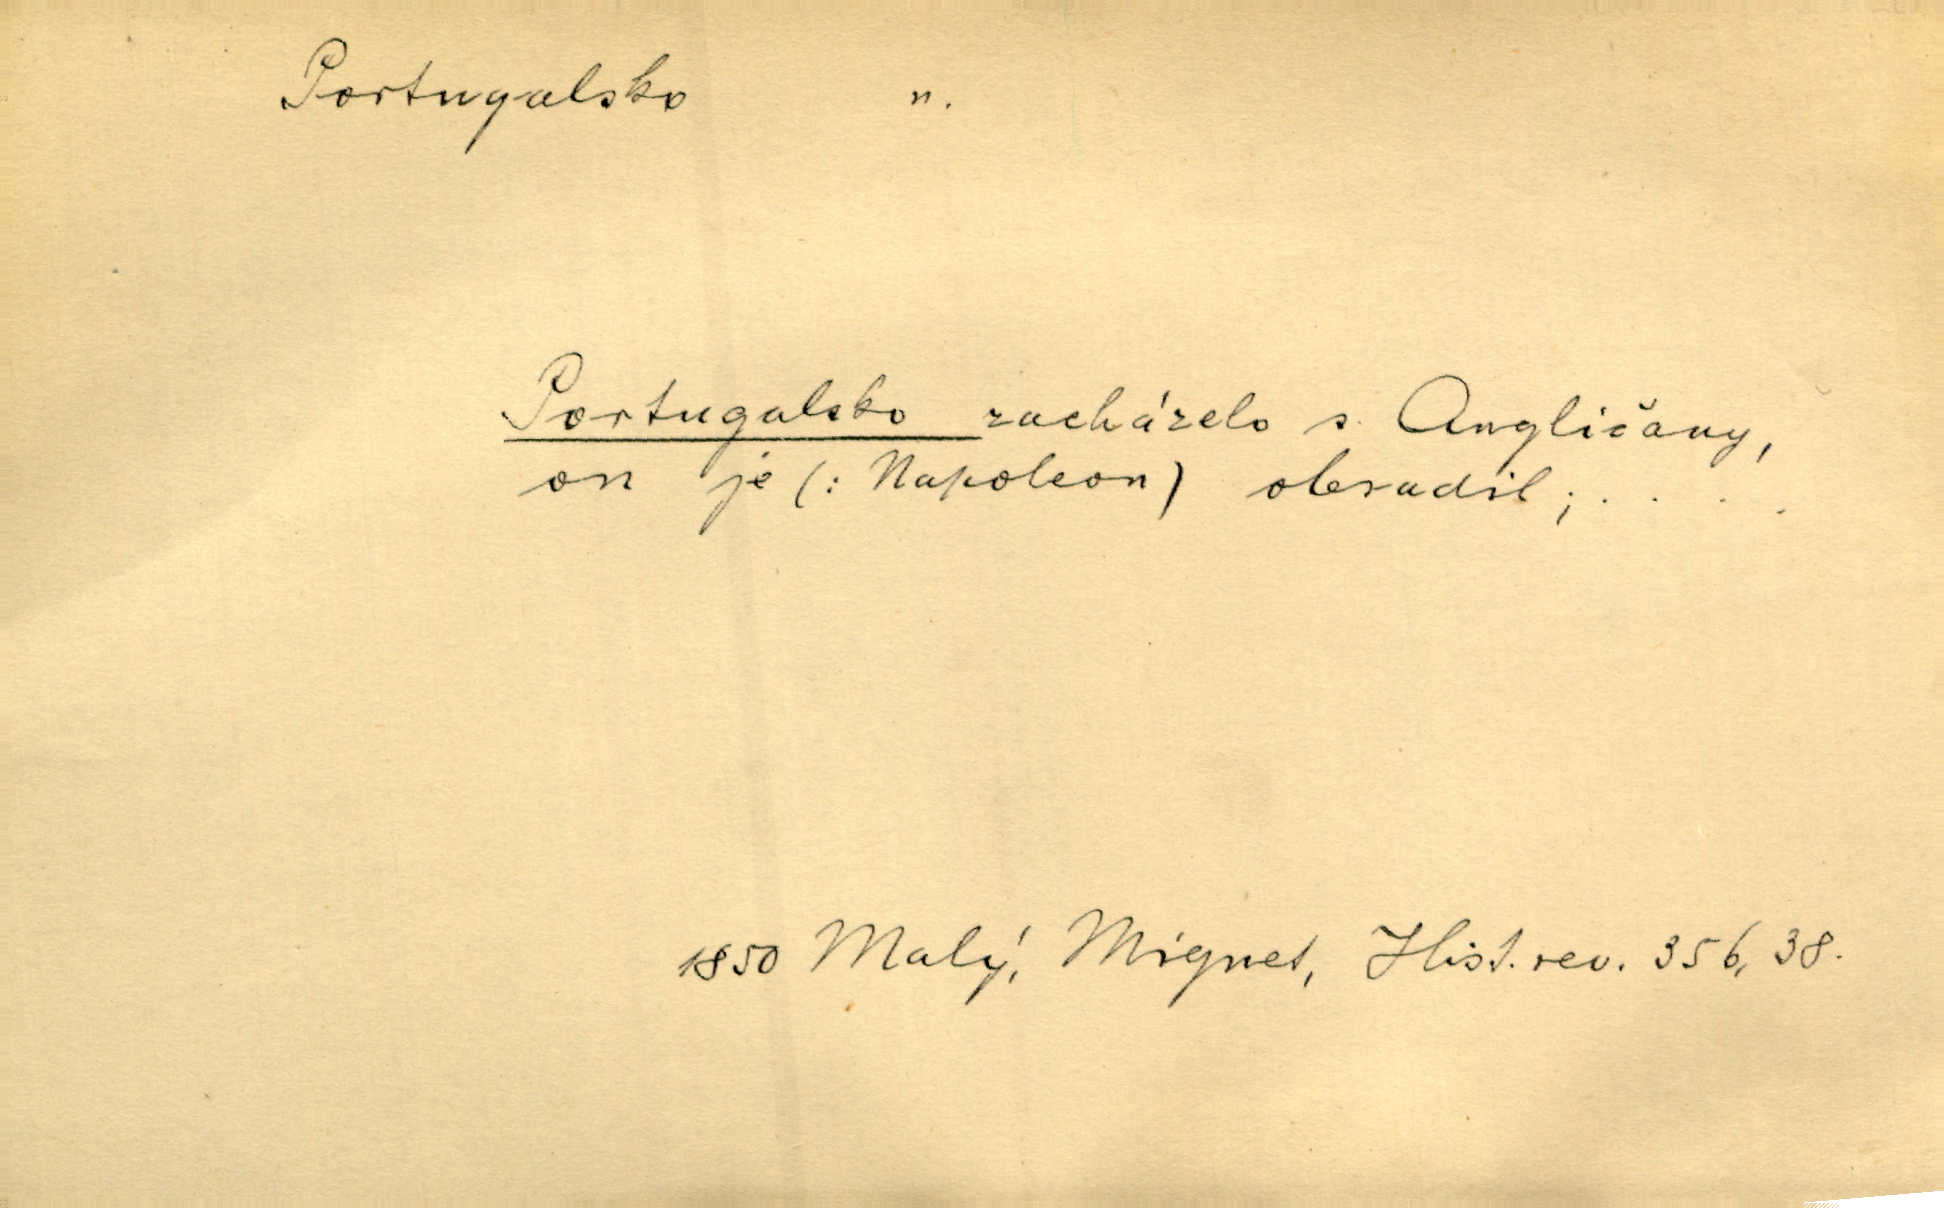 Portugalsko n.
Portugalsko zacházelo s Angličany,
on je (: Napoleon) obsadil; . . . .
1850 Malý, Mignet, Hist. rev. 356, 38.